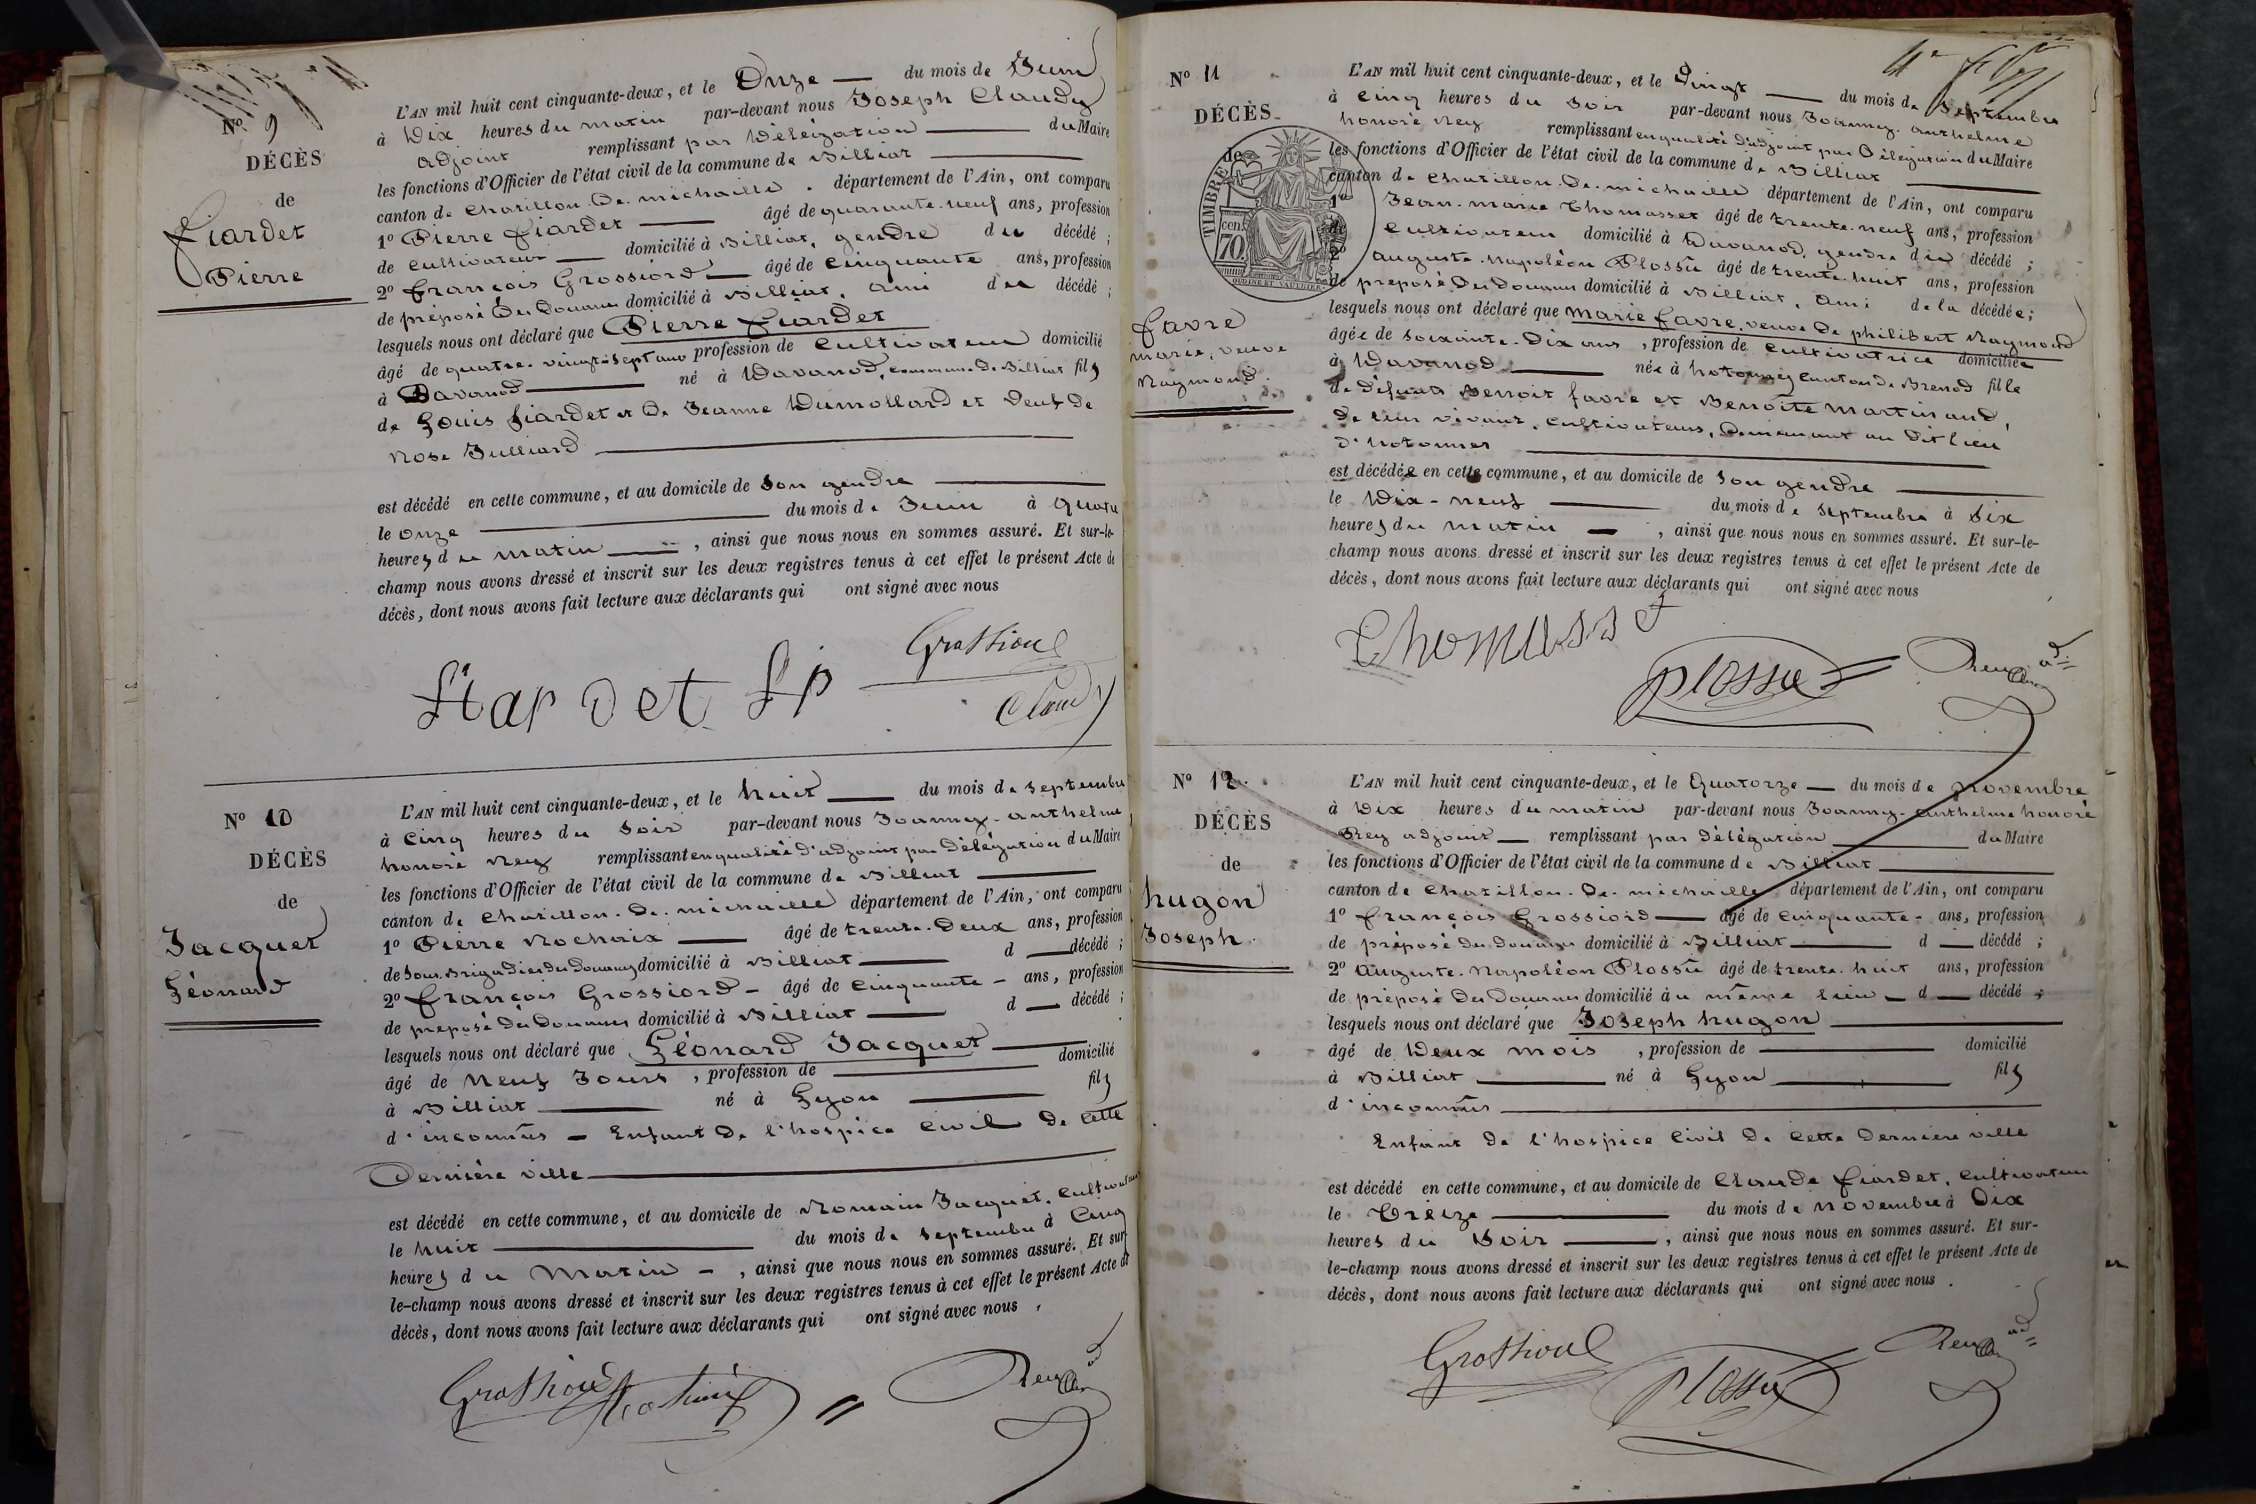 N° 9
DÉCÈS
de
Fiardet
Pierre
L'AN mil huit cent cinquante-deux, et le Onze — du mois de Juin
à Dix heures du matin par-devant nous Joseph Claudy
adjoint remplissant par Délégation — du Maire
les fonctions d'Officier de l'état civil de la commune de Billiat —
canton de Chatillon-De-michaille. département de l'Ain, ont comparu
1° Pierre Fiardet — âgé de quarante-neuf ans, profession
de cultivateur — domicilié à Billiat, gendre du décédé ;
2° François Grossiord — âgé de cinquante ans, profession
de préposé Des Douanes domicilié à Billiat, ami du décédé ;
lesquels nous ont déclaré que Pierre Fiardet
âgé de quatre-vingt-sept ans profession de cultivateur domicilié
à Davanod — né à Davanod, commune de Billiat fils
de Louis Fiardet et De Jeanne Dumollard et veuf de
Rose Julliard —
est décédé en cette commune, et au domicile de son gendre —
le onze — du mois de Juin à quatre
heures du matin — , ainsi que nous nous en sommes assuré. Et sur-le-
champ nous avons dressé et inscrit sur les deux registres tenus à cet effet le présent Acte de
décès, dont nous avons fait lecture aux déclarants qui ont signé avec nous
Grossiord
Fiardet fp
Claudy
N° 10
DÉCÈS
de
Jacquet
Léonard
L'AN mil huit cent cinquante-deux, et le huit — du mois de septembre
à cinq heures du soir par-devant nous Joanny-anthelme
honoré Rey remplissant en qualité d'adjoint par Délégation du Maire
les fonctions d'Officier de l'état civil de la commune de Billiat —
canton de Chatillon-De-michaille département de l'Ain, ont comparu
1° Pierre Rochaix — âgé de trente-Deux ans, profession
de sous Brigadier des Douanes domicilié à Billiat — d — décédé ;
2° François Grossiord — âgé de cinquante — ans, profession
de préposé Des Douanes domicilié à Billiat — d — décédé ;
lesquels nous ont déclaré que Léonard Jacquet —
âgé de Neuf Jours , profession de — domicilié
à Billiat — né à Lyon — fils
d'inconnus — Enfant De l'hospice Civil De cette
Dernière ville —
est décédé en cette commune, et au domicile de Romain Jacquet, cultivateur
le huit — du mois de septembre à cinq
heures du Matin — , ainsi que nous nous en sommes assuré. Et sur
le-champ nous avons dressé et inscrit sur les deux registres tenus à cet effet le présent Acte de
décès, dont nous avons fait lecture aux déclarants qui ont signé avec nous
Grossiord Rochaix Rey ad
N° 11
DÉCÈS
de
TIMBRE
70 cen.
Favre
marie, veuve
Raymond
L'AN mil huit cent cinquante-deux, et le Vingt — du mois de septembre
à cinq heures du soir par-devant nous Joanny-anthelme
honoré Rey remplissant en qualité d'adjoint par Délégation du Maire
les fonctions d'Officier de l'état civil de la commune de Billiat —
canton de Chatillon-De-michaille département de l'Ain, ont comparu
1° Jean-marie Thomasset âgé de trente-neuf ans, profession
de cultivateur domicilié à Davanod, gendre du décédé ;
2° auguste-Napoléon Plossu âgé de trente-huit ans, profession
de préposé Des Douanes domicilié à Billiat, ami de la décédée ;
lesquels nous ont déclaré que Marie Favre, veuve De philibert Raymond
âgée de soixante-Dix ans , profession de cultivatrice domiciliée
à Davanod — née à hotonnes canton de Brenod fille
de Défunts Benoit favre et Benoîte Martinand,
De leur vivant, cultivateurs, Demeurant au Dit lieu
d'hotonnes —
est décédée en cette commune, et au domicile de son gendre —
le Dix-neuf — du mois de septembre à six
heures du matin — , ainsi que nous nous en sommes assuré. Et sur-le-
champ nous avons dressé et inscrit sur les deux registres tenus à cet effet le présent Acte de
décès, dont nous avons fait lecture aux déclarants qui ont signé avec nous
Thomasset
Plossu Rey ad
N° 12
DÉCÈS
de
hugon
Joseph
L'AN mil huit cent cinquante-deux, et le Quatorze — du mois de Novembre
à Dix heures du matin par-devant nous Joanny-anthelme honoré
Rey adjoint — remplissant par Délégation — du Maire
les fonctions d'Officier de l'état civil de la commune de Billiat —
canton de Chatillon-De-michaille département de l'Ain, ont comparu
1° François Grossiord — âgé de cinquante — ans, profession
de préposé des Douanes domicilié à Billiat — d — décédé ;
2° auguste-Napoléon Plossu âgé de trente-huit ans, profession
de préposé Des Douanes domicilié au même lieu — d — décédé ;
lesquels nous ont déclaré que Joseph hugon —
âgé de Deux mois , profession de — domicilié
à Billiat — né à Lyon — fils
d'inconnus —
Enfant De l'hospice Civil De Cette Dernière ville
est décédé en cette commune, et au domicile de Claude Fiardet, cultivateur
le Treize — du mois de Novembre à Dix
heures du Soir — , ainsi que nous nous en sommes assuré. Et sur-
le-champ nous avons dressé et inscrit sur les deux registres tenus à cet effet le présent Acte de
décès, dont nous avons fait lecture aux déclarants qui ont signé avec nous .
Grossiord Plossu Rey ad